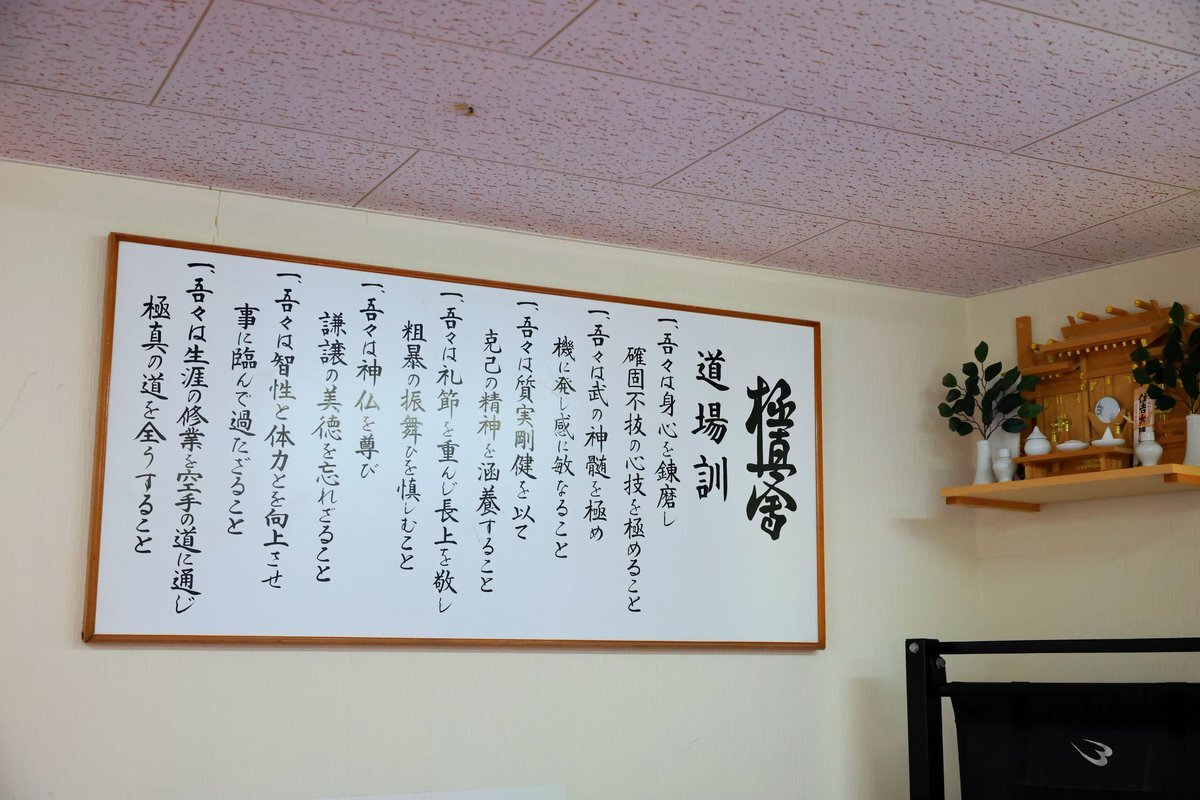 極真會
道場訓
一、吾々は身心を錬磨し
確固不抜の心技を極めること
一、吾々は武の神髄を極め
機に発し感に敏なること
一、吾々は質実剛健を以て
克己の精神を涵養すること
一、吾々は礼節を重んじ長上を敬し
粗暴の振舞いを慎しむこと
一、吾々は神仏を尊び
謙譲の美徳を忘れざること
一、吾々は智性と体力とを向上させ
事に臨んで過たざること
一、吾々は生涯の修業を空手の道に通じ
極真の道を全うすること